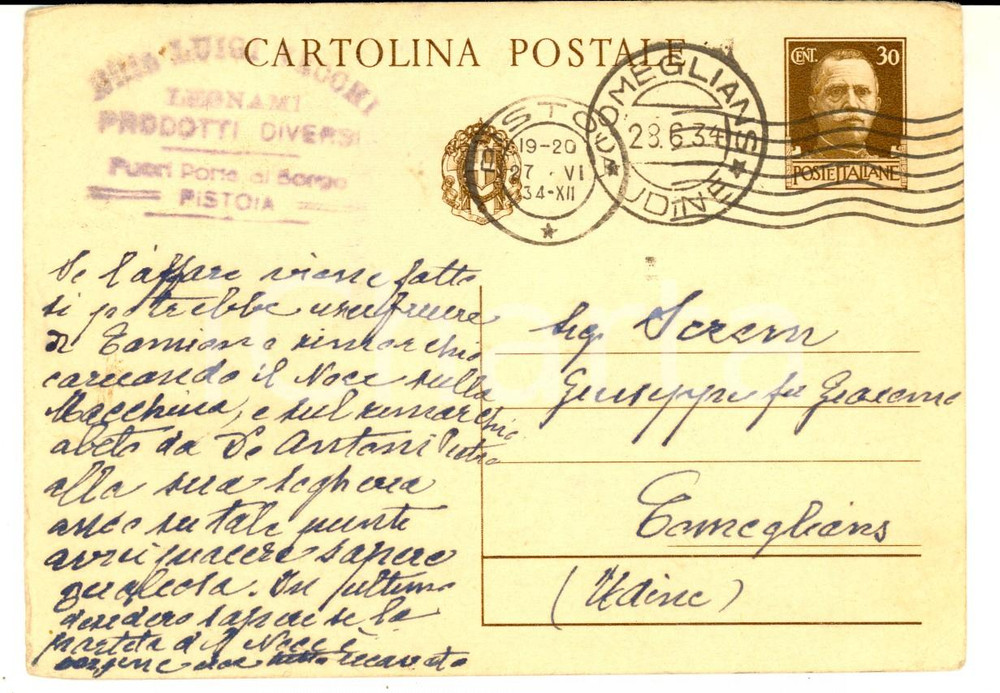 CARTOLINA POSTALE
LUIGI
LEGNAMI
PRODOTTI DIVERSI
Fuori Porta al Borgo
PISTOIA
19-20
27 VI
34-XII
COMEGLIANS
28.6.34
UDINE
CENT. 30
POSTE ITALIANE
Se l'affare viene fatto
si potrebbe usufruire
di Camion e rimorchio
caricando il Noce sulla
Macchina, e sul rimorchio
abete da De Antoni Pietro
alla sua segheria
su tale punto
avrei piacere sapere
qualcosa. In ultimo
desidero sapere se la
partita di Noce è
recavato
Sig. Screm
Giuseppe fu Giacomo
Comeglians
(Udine)